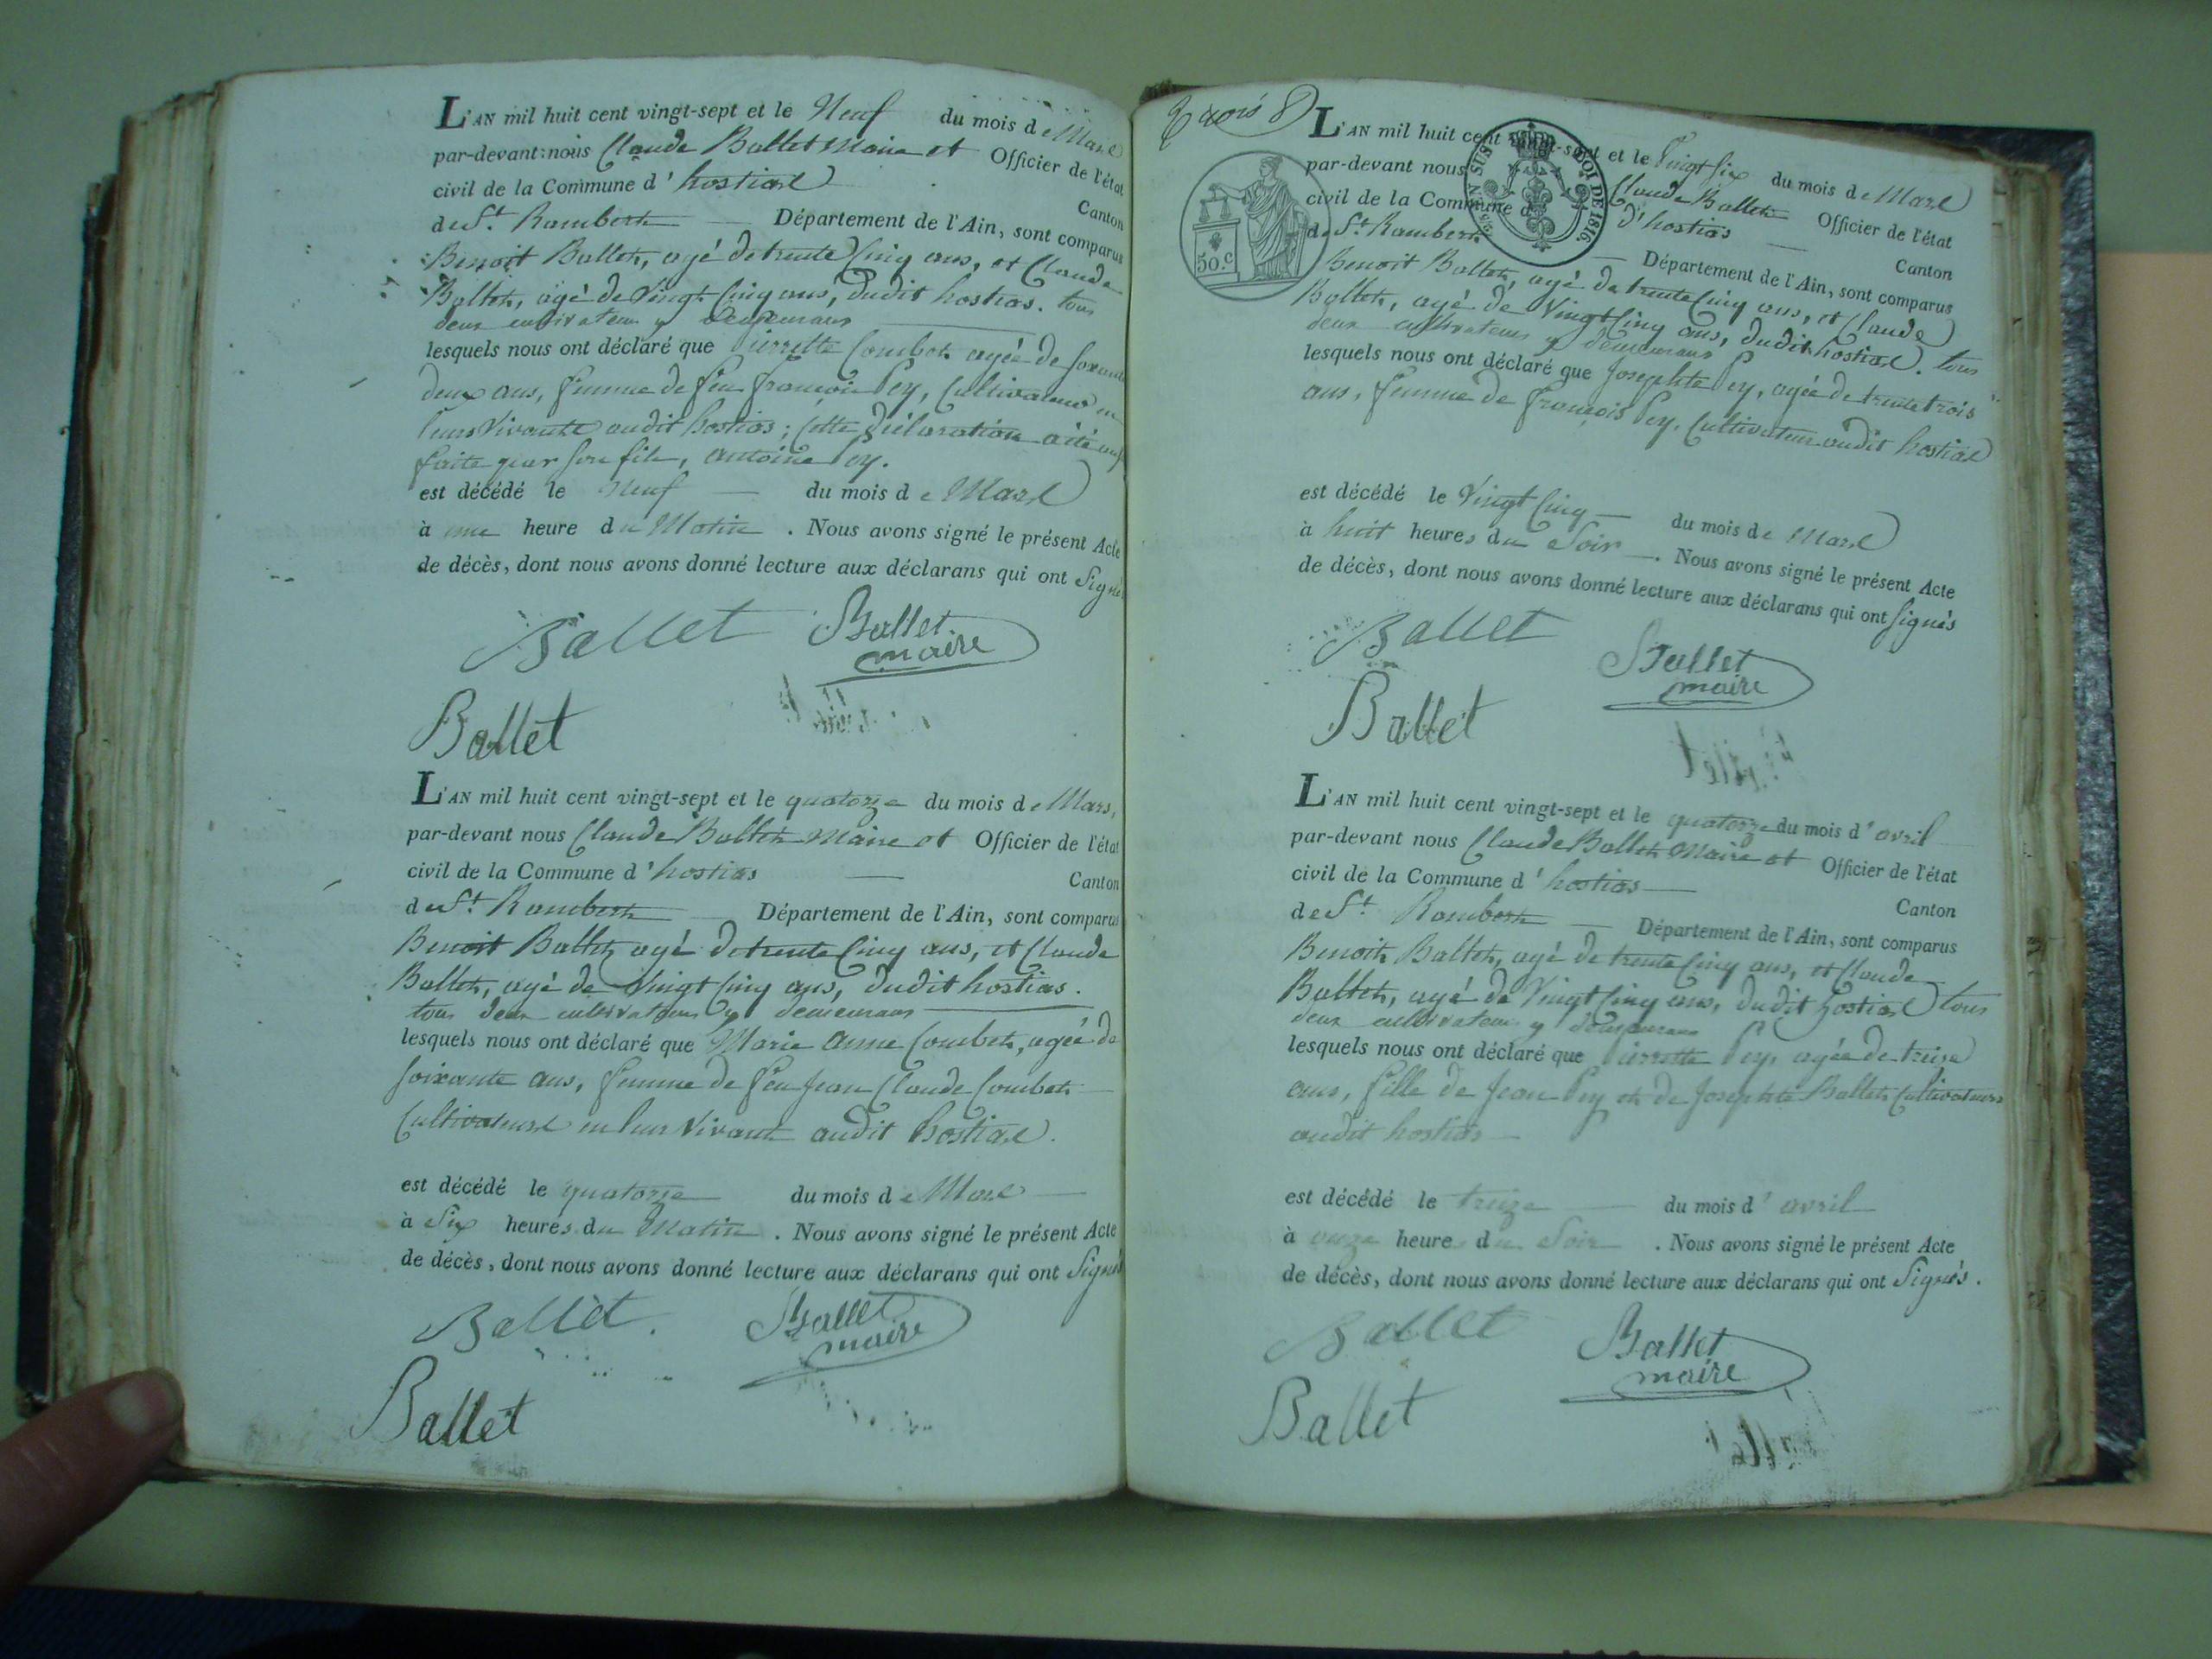 L'AN mil huit cent vingt-sept et le Neuf du mois de Mars
par-devant nous Claude Ballet Maire et Officier de l'état
civil de la Commune d'hostias Canton
de St. Rambert Département de l'Ain, sont comparus
Benoit Ballet, agé de trente Cinq ans, et Claude
Ballet, agé de Vingt Cinq ans, dudit hostias. tous
deux cultivateurs y demeurans
lesquels nous ont déclaré que Pierrette Combet agée de soixante
deux ans, femme de feu françois Pey, Cultivateurs en
leurs Vivants audit hostias; Cette Déclaration a été
faite par son fils, antoine Pey.
est décédé le Neuf du mois de Mars
à une heure du Matin. Nous avons signé le présent Acte
de décès, dont nous avons donné lecture aux déclarans qui ont Signés
Ballet Ballet
maire
Ballet
L'AN mil huit cent vingt-sept et le quatorze du mois de Mars,
par-devant nous Claude Ballet Maire et Officier de l'état
civil de la Commune d'hostias Canton
de St. Rambert Département de l'Ain, sont comparus
Benoit Ballet, agé de trente Cinq ans, et Claude
Ballet, agé de Vingt Cinq ans, dudit hostias.
tous deux cultivateurs y demeurans
lesquels nous ont déclaré que Marie Anne Combet, agée de
soixante ans, femme de feu Jean Claude Combet
Cultivateurs en leur Vivant audit hostias.
est décédé le quatorze du mois de Mars
à Six heures du Matin. Nous avons signé le présent Acte
de décès, dont nous avons donné lecture aux déclarans qui ont Signés
Ballet. Ballet
maire
Ballet
L'AN mil huit cent vingt-sept et le Vingt Six du mois de Mars
par-devant nous Claude Ballet Officier de l'état
civil de la Commune d'hostias Canton
de St. Rambert Département de l'Ain, sont comparus
50.C
LOI DE 1816.
benoit Ballet, agé de trente Cinq ans, et Claude
Ballet, agé de Vingt Cinq ans, dudit hostias. tous
deux cultivateurs y demeurans
lesquels nous ont déclaré que Josephte Pey, agée de trente trois
ans, femme de françois Pey, Cultivateur audit hostias
est décédé le Vingt Cinq du mois de Mars
à huit heures du Soir. Nous avons signé le présent Acte
de décès, dont nous avons donné lecture aux déclarans qui ont Signés
Ballet Ballet
maire
Ballet
L'AN mil huit cent vingt-sept et le quatorze du mois d'avril
par-devant nous Claude Ballet Maire et Officier de l'état
civil de la Commune d'hostias Canton
de St. Rambert Département de l'Ain, sont comparus
Benoit Ballet, agé de trente Cinq ans, et Claude
Ballet, agé de Vingt Cinq ans, dudit hostias tous
deux cultivateurs y demeurans
lesquels nous ont déclaré que Pierrette Pey, agée de treize
ans, fille de Jean Pey et de Josephte Ballet Cultivateurs
audit hostias
est décédé le treize du mois d'avril
à onze heure du Soir. Nous avons signé le présent Acte
de décès, dont nous avons donné lecture aux déclarans qui ont Signés.
Ballet Ballet
maire
Ballet